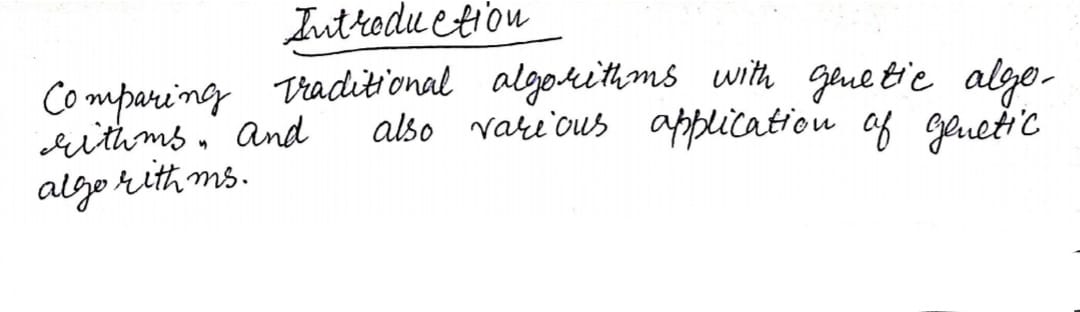 Introduction
Comparing Traditional algorithms with genetic algo-
rithms, and also various application of genetic
algorithms.